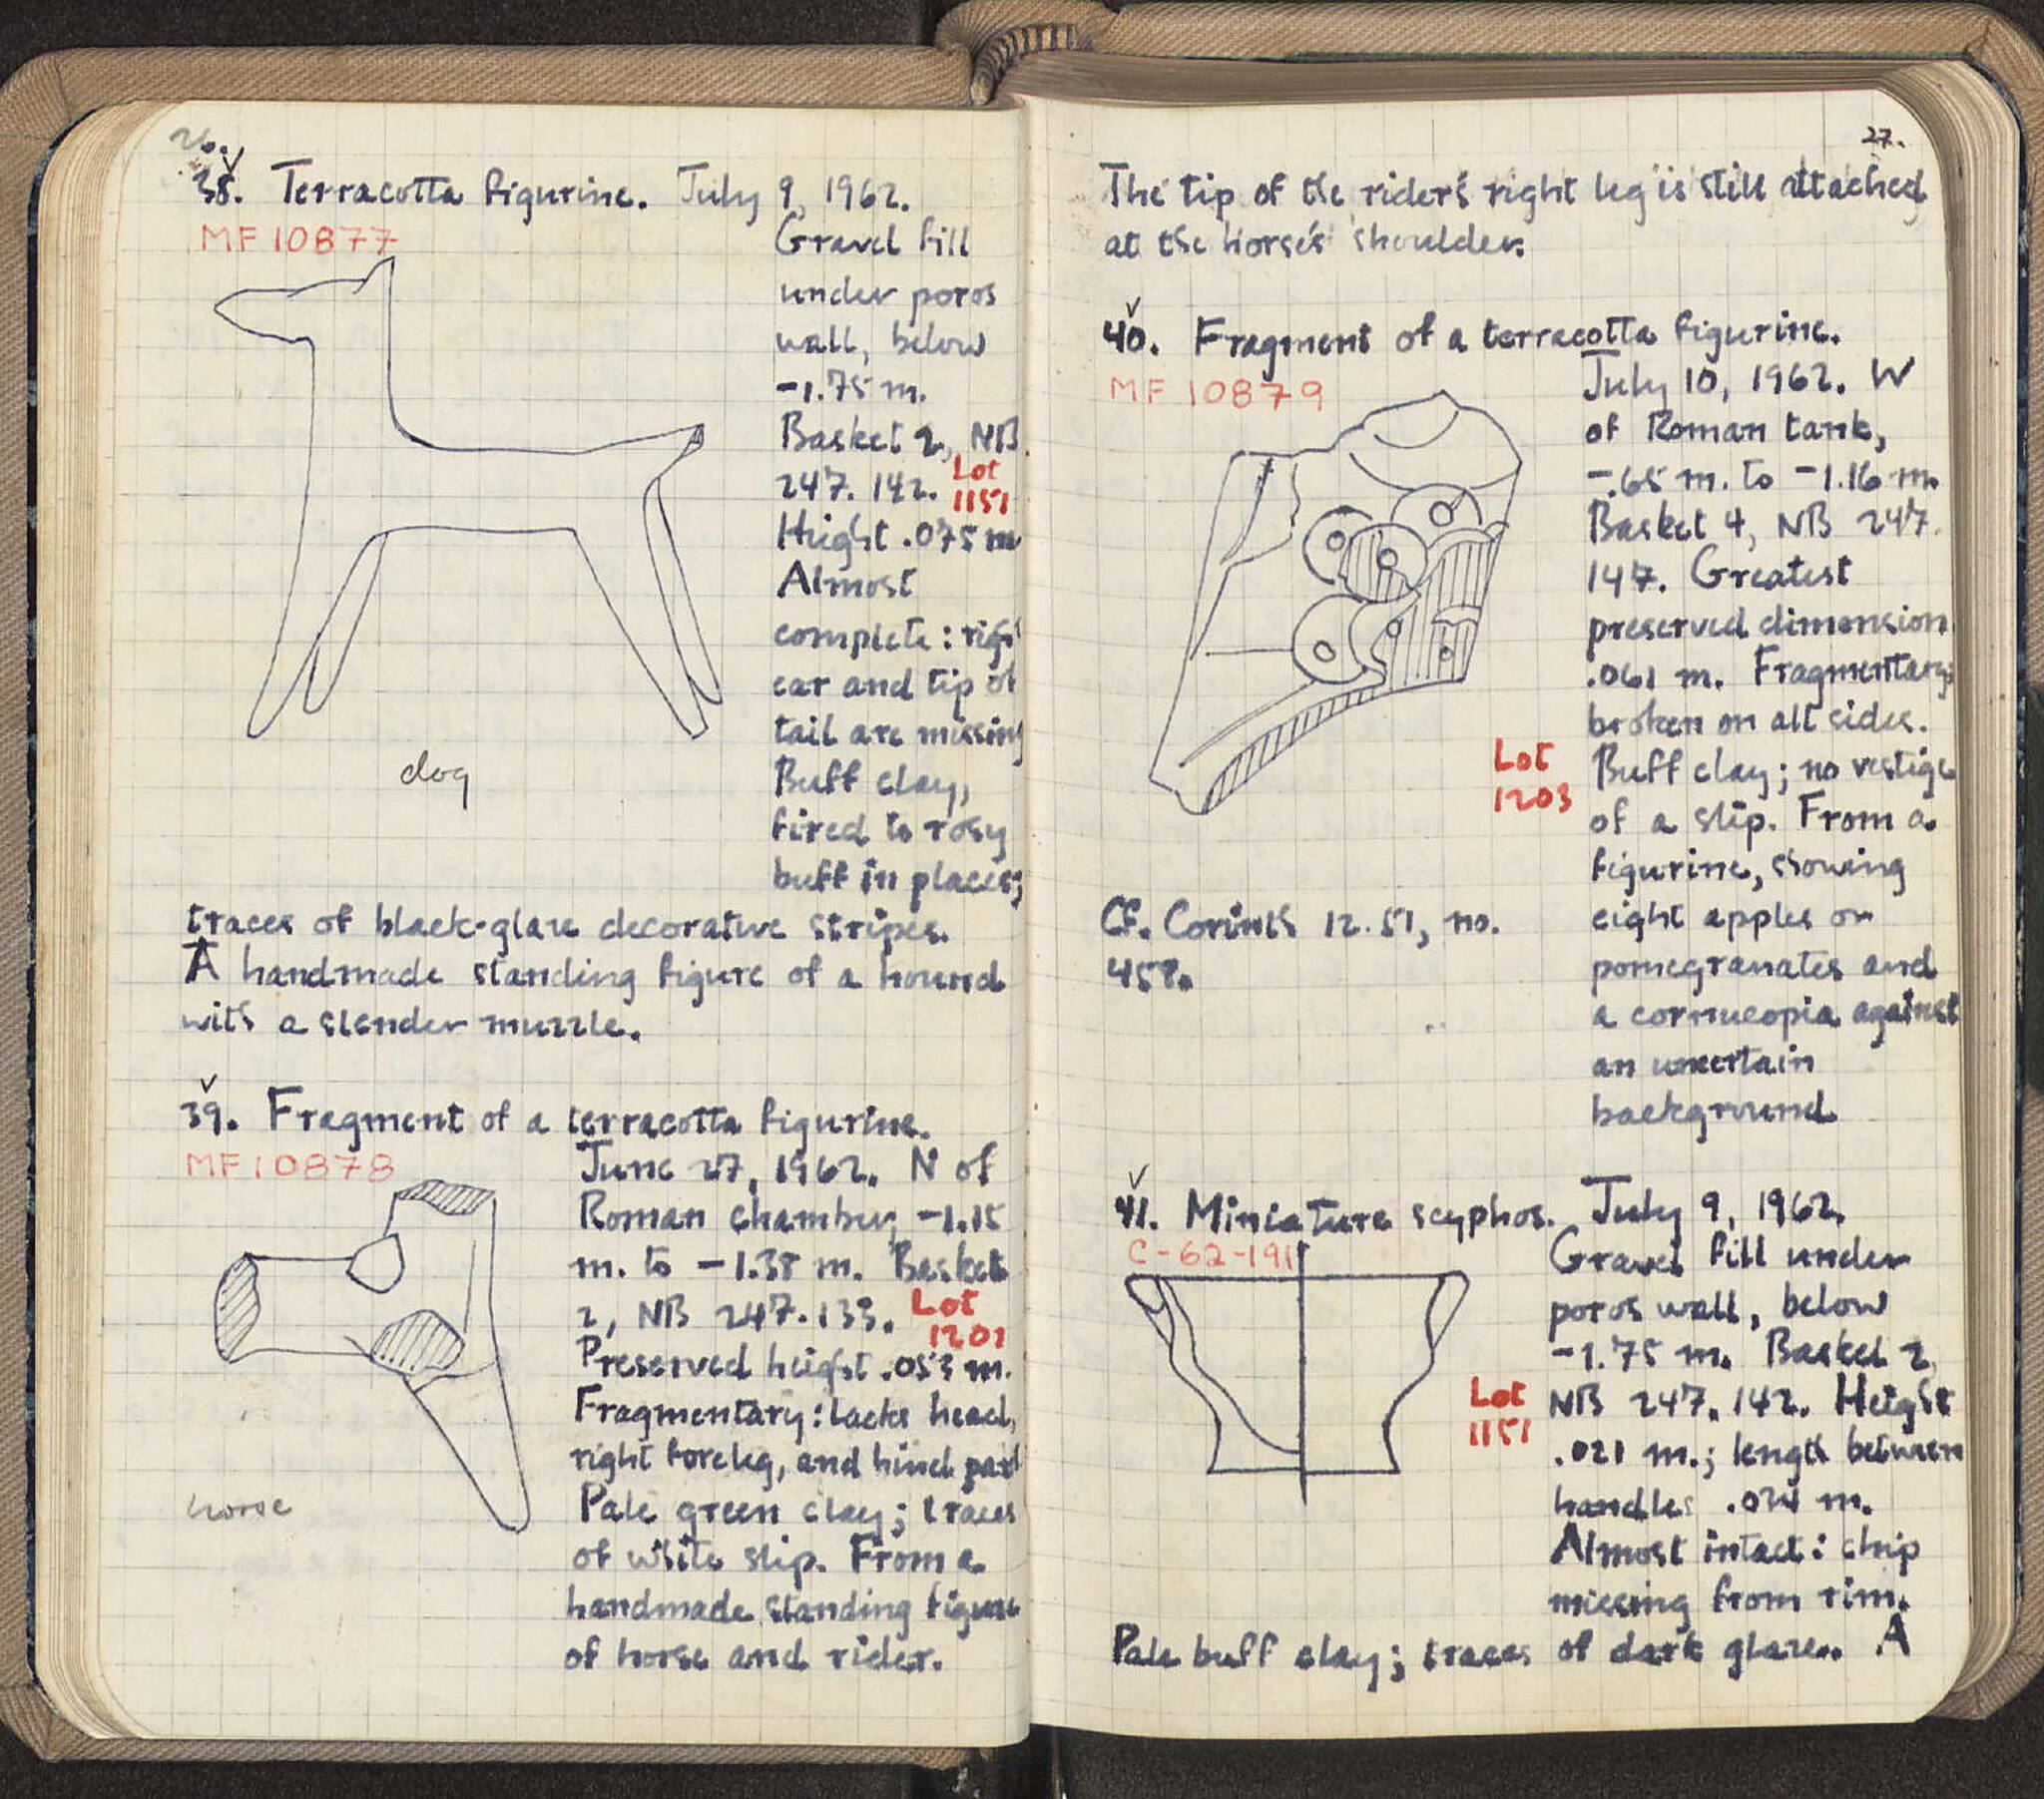 26.
38. Terracotta figurine. July 9, 1962.
MF 10877
Gravel fill
under poros
wall, below
-1.75 m.
Basket 2, NB
247. 142. Lot
1151
Height .075 m
Almost
complete: right
ear and tip of
tail are missing
Buff clay,
fired to rosy
buff in places;
dog
traces of black-glaze decorative stripes.
A handmade standing figure of a hound
with a slender muzzle.
39. Fragment of a terracotta figurine.
MF 10878
June 27, 1962. N of
Roman chamber, -1.15
m. to -1.38 m. Basket
2, NB 247. 133. Lot
1201
Preserved height .053 m.
Fragmentary: lacks head,
right foreleg, and hind part
horse
Pale green clay; traces
of white slip. From a
handmade standing figure
of horse and rider.
27.
The tip of the rider's right leg is still attached
at the horse's shoulder.
40. Fragment of a terracotta figurine.
MF 10879
July 10, 1962. W
of Roman tank,
-.65 m. to -1.16 m.
Basket 4, NB 247.
147. Greatest
preserved dimension
.061 m. Fragmentary:
broken on all sides.
Lot
1203
Buff clay; no vestige
of a slip. From a
figurine, showing
eight apples or
pomegranates and
a cornucopia against
an uncertain
background
Cf. Corinth 12. 51, no.
458.
41. Miniature scyphos. July 9, 1962.
C-62-191
Gravel fill under
poros wall, below
-1.75 m. Basket 2,
Lot
1151
NB 247. 142. Height
.021 m.; length between
handles m.
Almost intact: chip
missing from rim.
Pale buff clay; traces of dark glaze. A